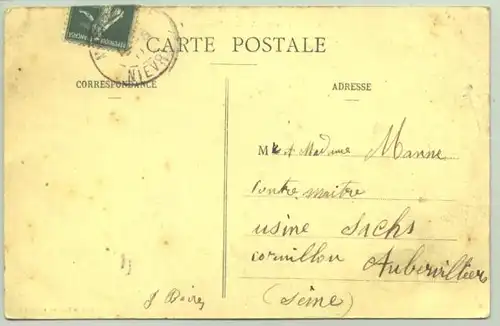 CARTE POSTALE
NIEVR
CORRESPONDANCE
ADRESSE
M et Madame Manne
Contre maitre
usine Sachs
cornillon Aubervillier
(Seine)